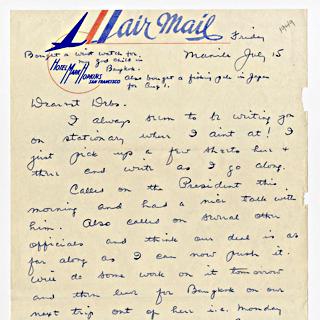 air Mail
1949
Friday
Manila July 15
Bought a wrist watch for
my god child in
Bangkok.
Also bought a fishing pole in Japan
for Aug 1.
HOTEL MARK HOPKINS
SAN FRANCISCO
Dearest Debs.
I always seem to be writing you
on stationary where I aint at! I
just pick up a few sheets here &
there and write as I go along.
Called on the President this
morning and had a nice talk with
him. Also called on several other
officials and think our deal is as
far along as I can now push it.
Will do some work on it tomorrow
and then leave for Bangkok on our
next trip out of here i.e. Monday